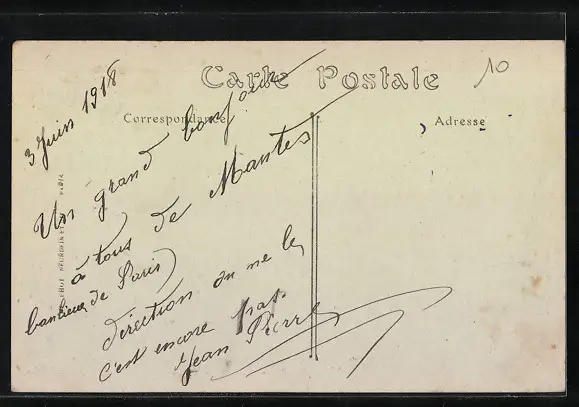 Carte Postale
10
Correspondance
Adresse
3 Juin 1918
Un grand bonjour
à tous de Mantes
banlieue de Paris)
direction on ne le
c'est encore pas.
Jean Pierre
PARIS